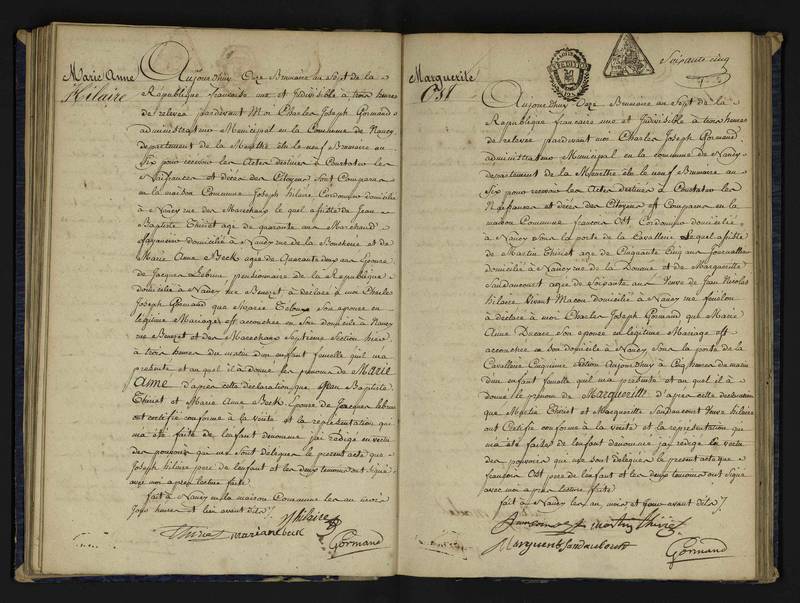 Marie Anne
Hilaire
Aujourd'huy Onze Brumaire an Sept de la
Republique francaise une et Indivisible à trois heures
de relevée pardevant Moi Charles Joseph Gormand
administrateur Municipal en la Commune de Nancy
departement de la Meurthe élu le neuf Brumaire an
Six pour recevoir les Actes destinés à Constater les
Naissances et décès des Citoyens Sont Comparus
en la maison Commune Joseph hilaire Cordonnier domicilié
à Nancy rue des Marechaux le quel assisté de Jean
Baptiste Thiriet age de quarante ans Marchand
fayancier domicilié à Nancy rue de la Boucherie et de
Marie Anne Beck agée de Quarante deux ans Epouse
de Jacques Lebrun pensionnaire de la Republique
domicilié à Nancy rue à déclaré à moi Charles
Joseph Gormand que Marie son epouse en
legitime Mariage est accouchée en Son domicile à Nancy
rue et des Marechaux Septieme Section hier
à trois heures du matin d'un enfant femelle quil ma
presenté et au quel il à donné les prenoms de Marie
Anne d'après cette declaration que Jean Baptiste
Thiriet et Marie Anne Beck Epouse de Jacques lebrun
ont certifié conforme à la verité et la representation qui
ma été faite de lenfant denommé jai rédigé en vertu
des pouvoirs qui me sont délégués le present acte que
Joseph hilaire pere de lenfant et les deux temoins ont Signé
avec moi apres lecture faite
fait à Nancy en la maison Commune les an mois
Jour heures et lieu avant dits
JHilaire
Thiriet mariane beck
Gormand
Soixante cinq
Marguerite
Ost
Aujourd'huy Onze Brumaire an Sept de la
Republique francaise une et Indivisible à trois heures
de relevée pardevant moi Charles Joseph Gormand
administrateur Municipal en la commune de Nancy
departement de la Meurthe élu le neuf Brumaire an
Six pour recevoir les Actes destinés à Constater les
Naissances et décès des Citoyens est Comparu en la
maison Commune francois Ost Cordonnier domicilié
à Nancy Sous la porte de la Cavallerie Lequel assisté
de Martin Thiriet age de Cinquante Cinq ans Journallier
domicilié à Nancy rue de la Douane et de Marguerite
Sandaucourt agée de Soixante ans Veuve de Jean Nicolas
hilaire Vivant Macon domiciliée à Nancy rue
à déclaré à moi Charles Joseph Gormand que Marie
Anne son epouse en legitime Mariage est
accouchée en son domicile à Nancy Sous la porte de la
Cavallerie Cinquieme Section Aujourd'huy à Cinq heures du matin
d'un enfant femelle quil ma presenté et au quel il à
donné le prenom de Marguerite d'apres cette declaration
que Martin Thiriet et Marguerite Sandaucourt Veuve hilaire
ont Certifié conforme à la verité et la representation qui
ma été faite de lenfant denommé jai rédigé en vertu
des pouvoirs qui me sont délégués le present acte que
francois Ost pere de lenfant et les deux temoins ont Signé
avec moi apres lecture faite
fait à Nancy les an mois et Jour avant dits
francois ost martin thiriet
Marguerite Sandaucourt
Gormand